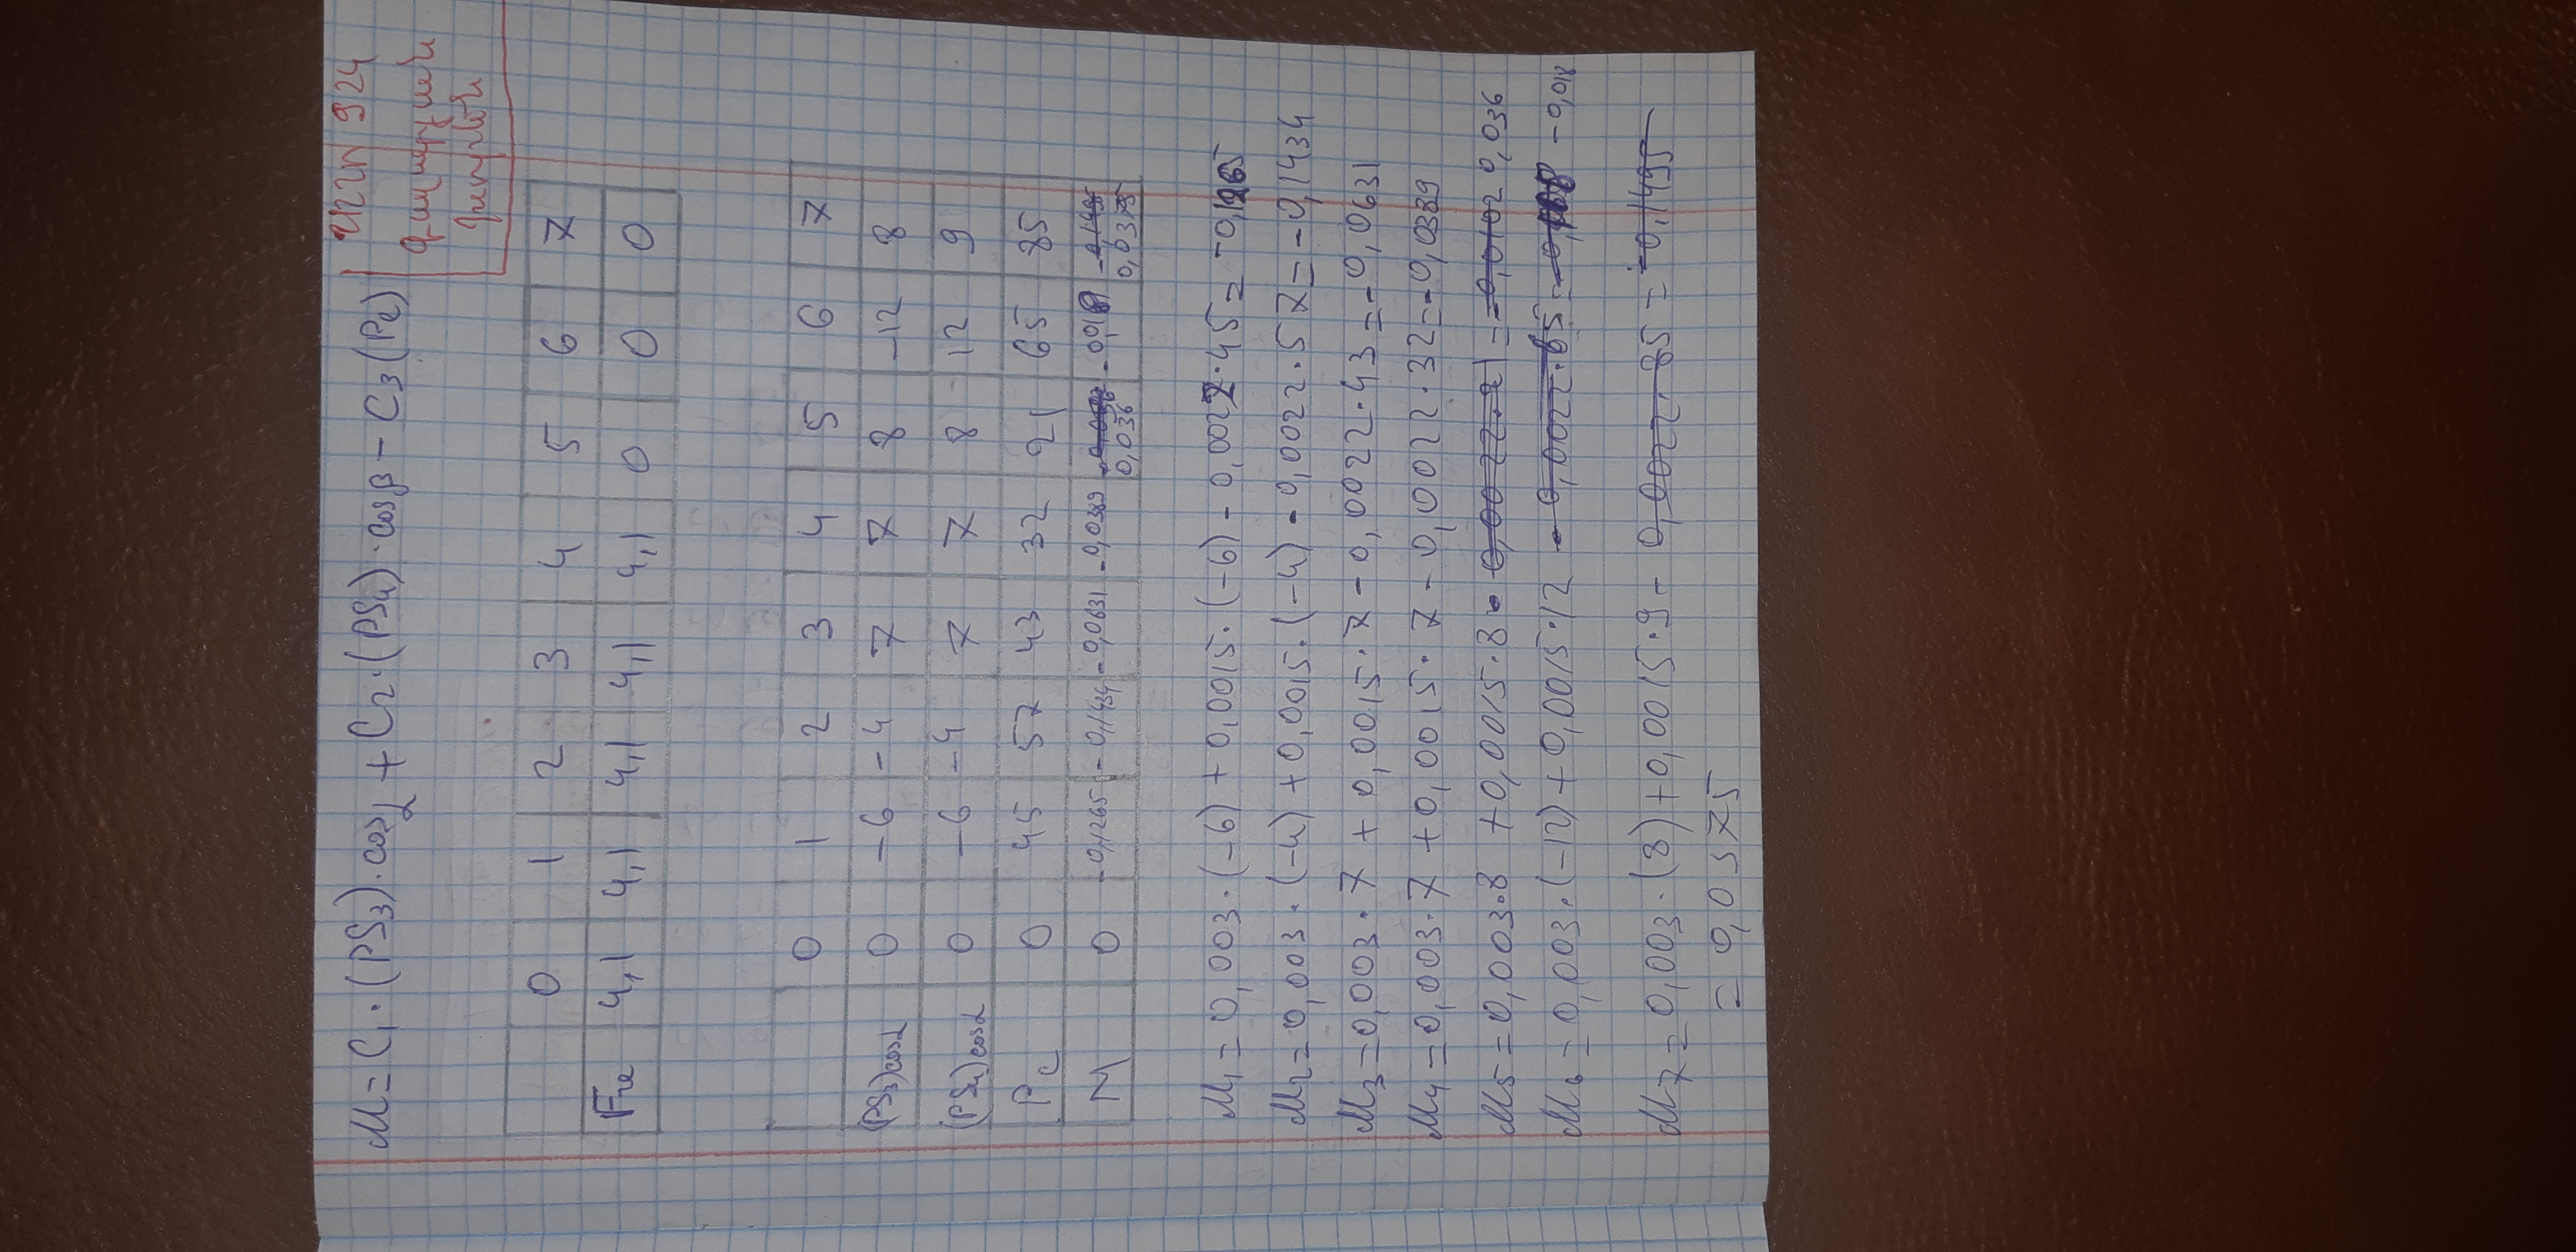 M = C₁·(PS₃)·cosα + C₂·(PS₄)·cosβ − C₃(Pc)
924
0 1 2 3 4 5 6 7
4,1 4,1 4,1 4,1 4,1 0 0 0
0 1 2 3 4 5 6 7
(PS₃)cosα 0 −6 −4 7 7 8 −12 8
(PS₄)cosα 0 −6 −4 7 7 8 12 9
Pc 0 45 57 43 32 21 65 85
M 0 −0,1265 −0,1434 −0,0631 −0,0389 0,036 −0,018 0,0375
M₁ = 0,003·(−6) + 0,0015·(−6) − 0,0022·45 = −0,1265
M₂ = 0,003·(−4) + 0,0015·(−4) − 0,0022·57 = −0,1434
M₃ = 0,003·7 + 0,0015·7 − 0,0022·43 = −0,0631
M₄ = 0,003·7 + 0,0015·7 − 0,0022·32 = −0,0389
M₅ = 0,003·8 + 0,0015·8 − 0,0022·21 = −0,0102 0,036
M₆ = 0,003·(−12) + 0,0015·12 − 0,0022·65 = −0,018
M₇ = 0,003·(8) + 0,0015·9 − 0,0022·85 = −0,1495
= 0,0375